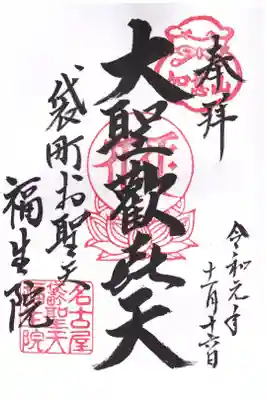 奉拝
令和元年
十一月十六日
大聖歡㐂天
袋町お聖天
福生院
名古屋
袋聖天
福生院